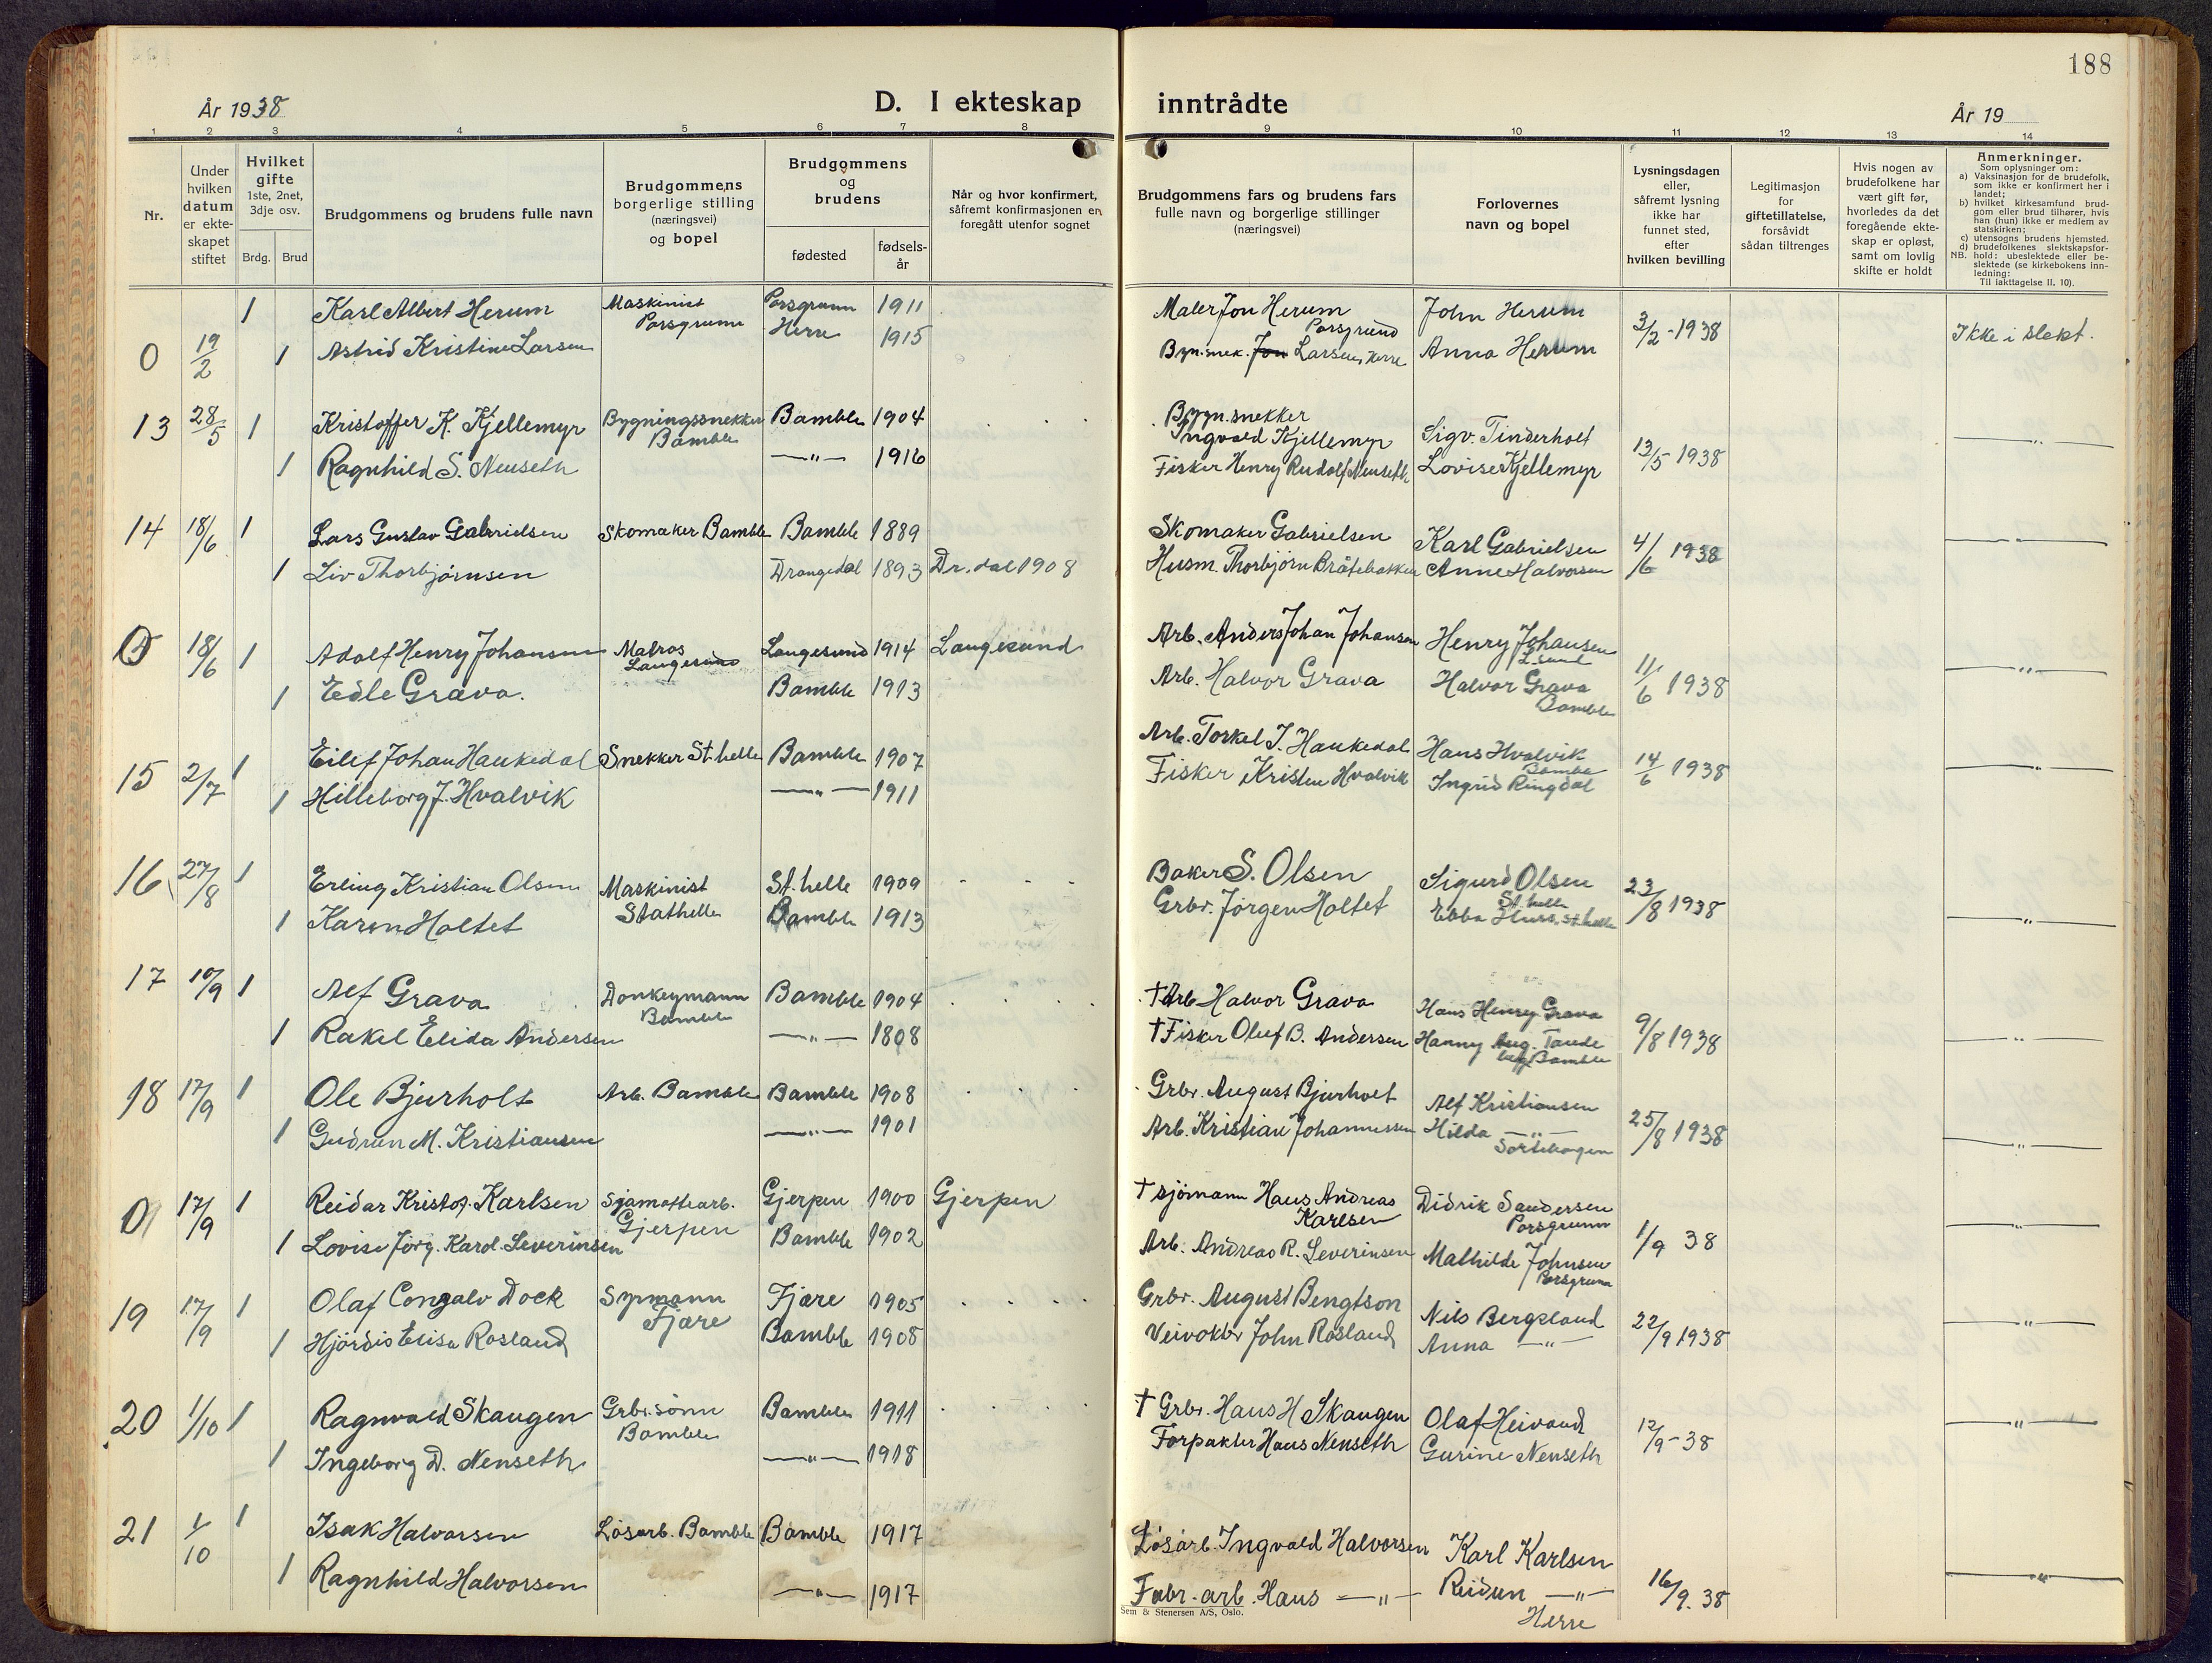 188
År 1938
D. I ekteskap inntrådte
År 19
1 2 3 4 5 6 7 8 9 10 11 12 13 14
Nr.
Under hvilken datum er ekteskapet stiftet
Hvilket gifte 1ste, 2net, 3dje osv.
Brdg. Brud
Brudgommens og brudens fulle navn
Brudgommens borgerlige stilling (næringsvei) og bopel
Brudgommens og brudens
fødested fødselsår
Når og hvor konfirmert, såfremt konfirmasjonen er foregått utenfor sognet
Brudgommens fars og brudens fars fulle navn og borgerlige stillinger (næringsvei)
Forlovernes navn og bopel
Lysningsdagen eller, såfremt lysning ikke har funnet sted, efter hvilken bevilling
Legitimasjon for giftetillatelse, forsåvidt sådan tiltrenges
Hvis nogen av brudefolkene har vært gift før, hvorledes da det foregående ekteskap er opløst, samt om lovlig skifte er holdt
Anmerkninger.
Som oplysninger om:
a) Vaksinasjon for de brudefolk, som ikke er konfirmert her i landet;
b) hvilket kirkesamfund brudgom eller brud tilhører, hvis han (hun) ikke er medlem av statskirken;
c) utensogns brudens hjemsted.
d) brudefolkenes slektskapsforhold: ubeslektede eller beslektede (se kirkebokens innledning:
NB. Til iakttagelse II. 10).
0 19/2 1 Karl Albert Herum Maskinist Porsgrunn Porsgrunn 1911 Maler Jon Herum Porsgrund John Herum 3/2-1938 Ikke i slekt.
1 Astrid Kristine Larsen Herre 1915 Bygn.snek. Jon Larsen, Herre Anna Herum
13 28/5 1 Kristoffer K. Kjellemyr Bygningssnekker Bamble Bamble 1904 Bygn.snekker Ingvald Kjellemyr Sigv. Tinderholt 13/5 1938 —"—
1 Ragnhild S. Neuseth —"— 1916 Fisker Henry Rudolf Neuseth Lovise Kjellemyr
14 18/6 1 Lars Gustav Gabrielsen Skomaker Bamble Bamble 1889 Skomaker Gabrielsen Karl Gabrielsen 4/6 1938 —"—
1 Liv Thorbjørnsen Drangedal 1893 Dr.dal 1908 Husm. Thorbjørn Bråtebakken Anne Halvorsen
0 18/6 1 Adolf Henry Johansen Matros Langesund Langesund 1914 Langesund Arb. Anders Johan Johansen Henry Johansen L.sund 11/6 1938 —"—
1 Edle Grava. Bamble 1913 Arb. Halvor Grava Halvor Grava Bamble
15 2/7 1 Eilef Johan Haukedal Snekker St.helle Bamble 1907 Arb. Torkel J. Haukedal Hans Hvalvik Bamble 14/6 1938 —"—
1 Hilleborg J. Hvalvik —"— 1911 Fisker Kristen Hvalvik Ingrid Ringdal
16 27/8 1 Erling Kristian Olsen Maskinist Stathelle St.helle 1909 Baker S. Olsen Sigurd Olsen St.helle 23/8 1938 —"—
1 Karen Holtet Bamble 1913 Grbr. Jørgen Holtet Ebba St.helle
17 10/9 1 Alf Grava Donkeymann Bamble Bamble 1904 †Arb Halvor Grava Hans Henry Grava 9/8 1938 —"—
1 Rakel Elida Andersen —"— †Fisker Oluf B. Andersen Hanny Aug. begge Bamble
18 17/9 1 Ole Bjurholt Arb. Bamble Bamble 1908 Grbr. August Bjurholt Alf Kristiansen 25/8 1938 —"—
1 Gudrun M. Kristiansen —"— 1901 Arb. Kristian Johannessen Hilda —"— Sortebogen
0 17/9 1 Reidar Kristof. Karlsen Gjerpen Gjerpen 1900 Gjerpen † sjömann Hans Andreas Karlsen Didrik Sandersen Porsgrunn 1/9 38 —"—
1 Lovise Jörg. Karol. Severinsen Bamble 1902 Arb. Andreas R. Severinsen Mathilde Johnsen Porsgrunn
19 17/9 1 Olaf Congalv Dock Fjære Fjære 1905 Grbr. August Bengtson Nils Bergsland 22/9 1938 —"—
1 Hjördis Elise Rosland Bamble 1908 Veivokter John Rosland Anna —"—
20 1/10 1 Ragnvald Skaugen Grbr.sönn Bamble Bamble 1911 † Grbr. Hans H Skaugen Olaf Heivand 12/9-38 —"—
1 Ingeborg D. Nenseth —"— 1918 Forpakter Hans Nenseth Gurine Nenseth
21 1/10 1 Isak Halvorsen Løsarb. Bamble Bamble 1917 Løsarb. Ingvald Halvorsen Karl Karlsen 16/9. 38 —"—
1 Ragnhild Halvorsen —"— 1917 Fabr.-arb. Hans —"— Reidun —"— Herre
Sem & Stenersen A/S, Oslo.